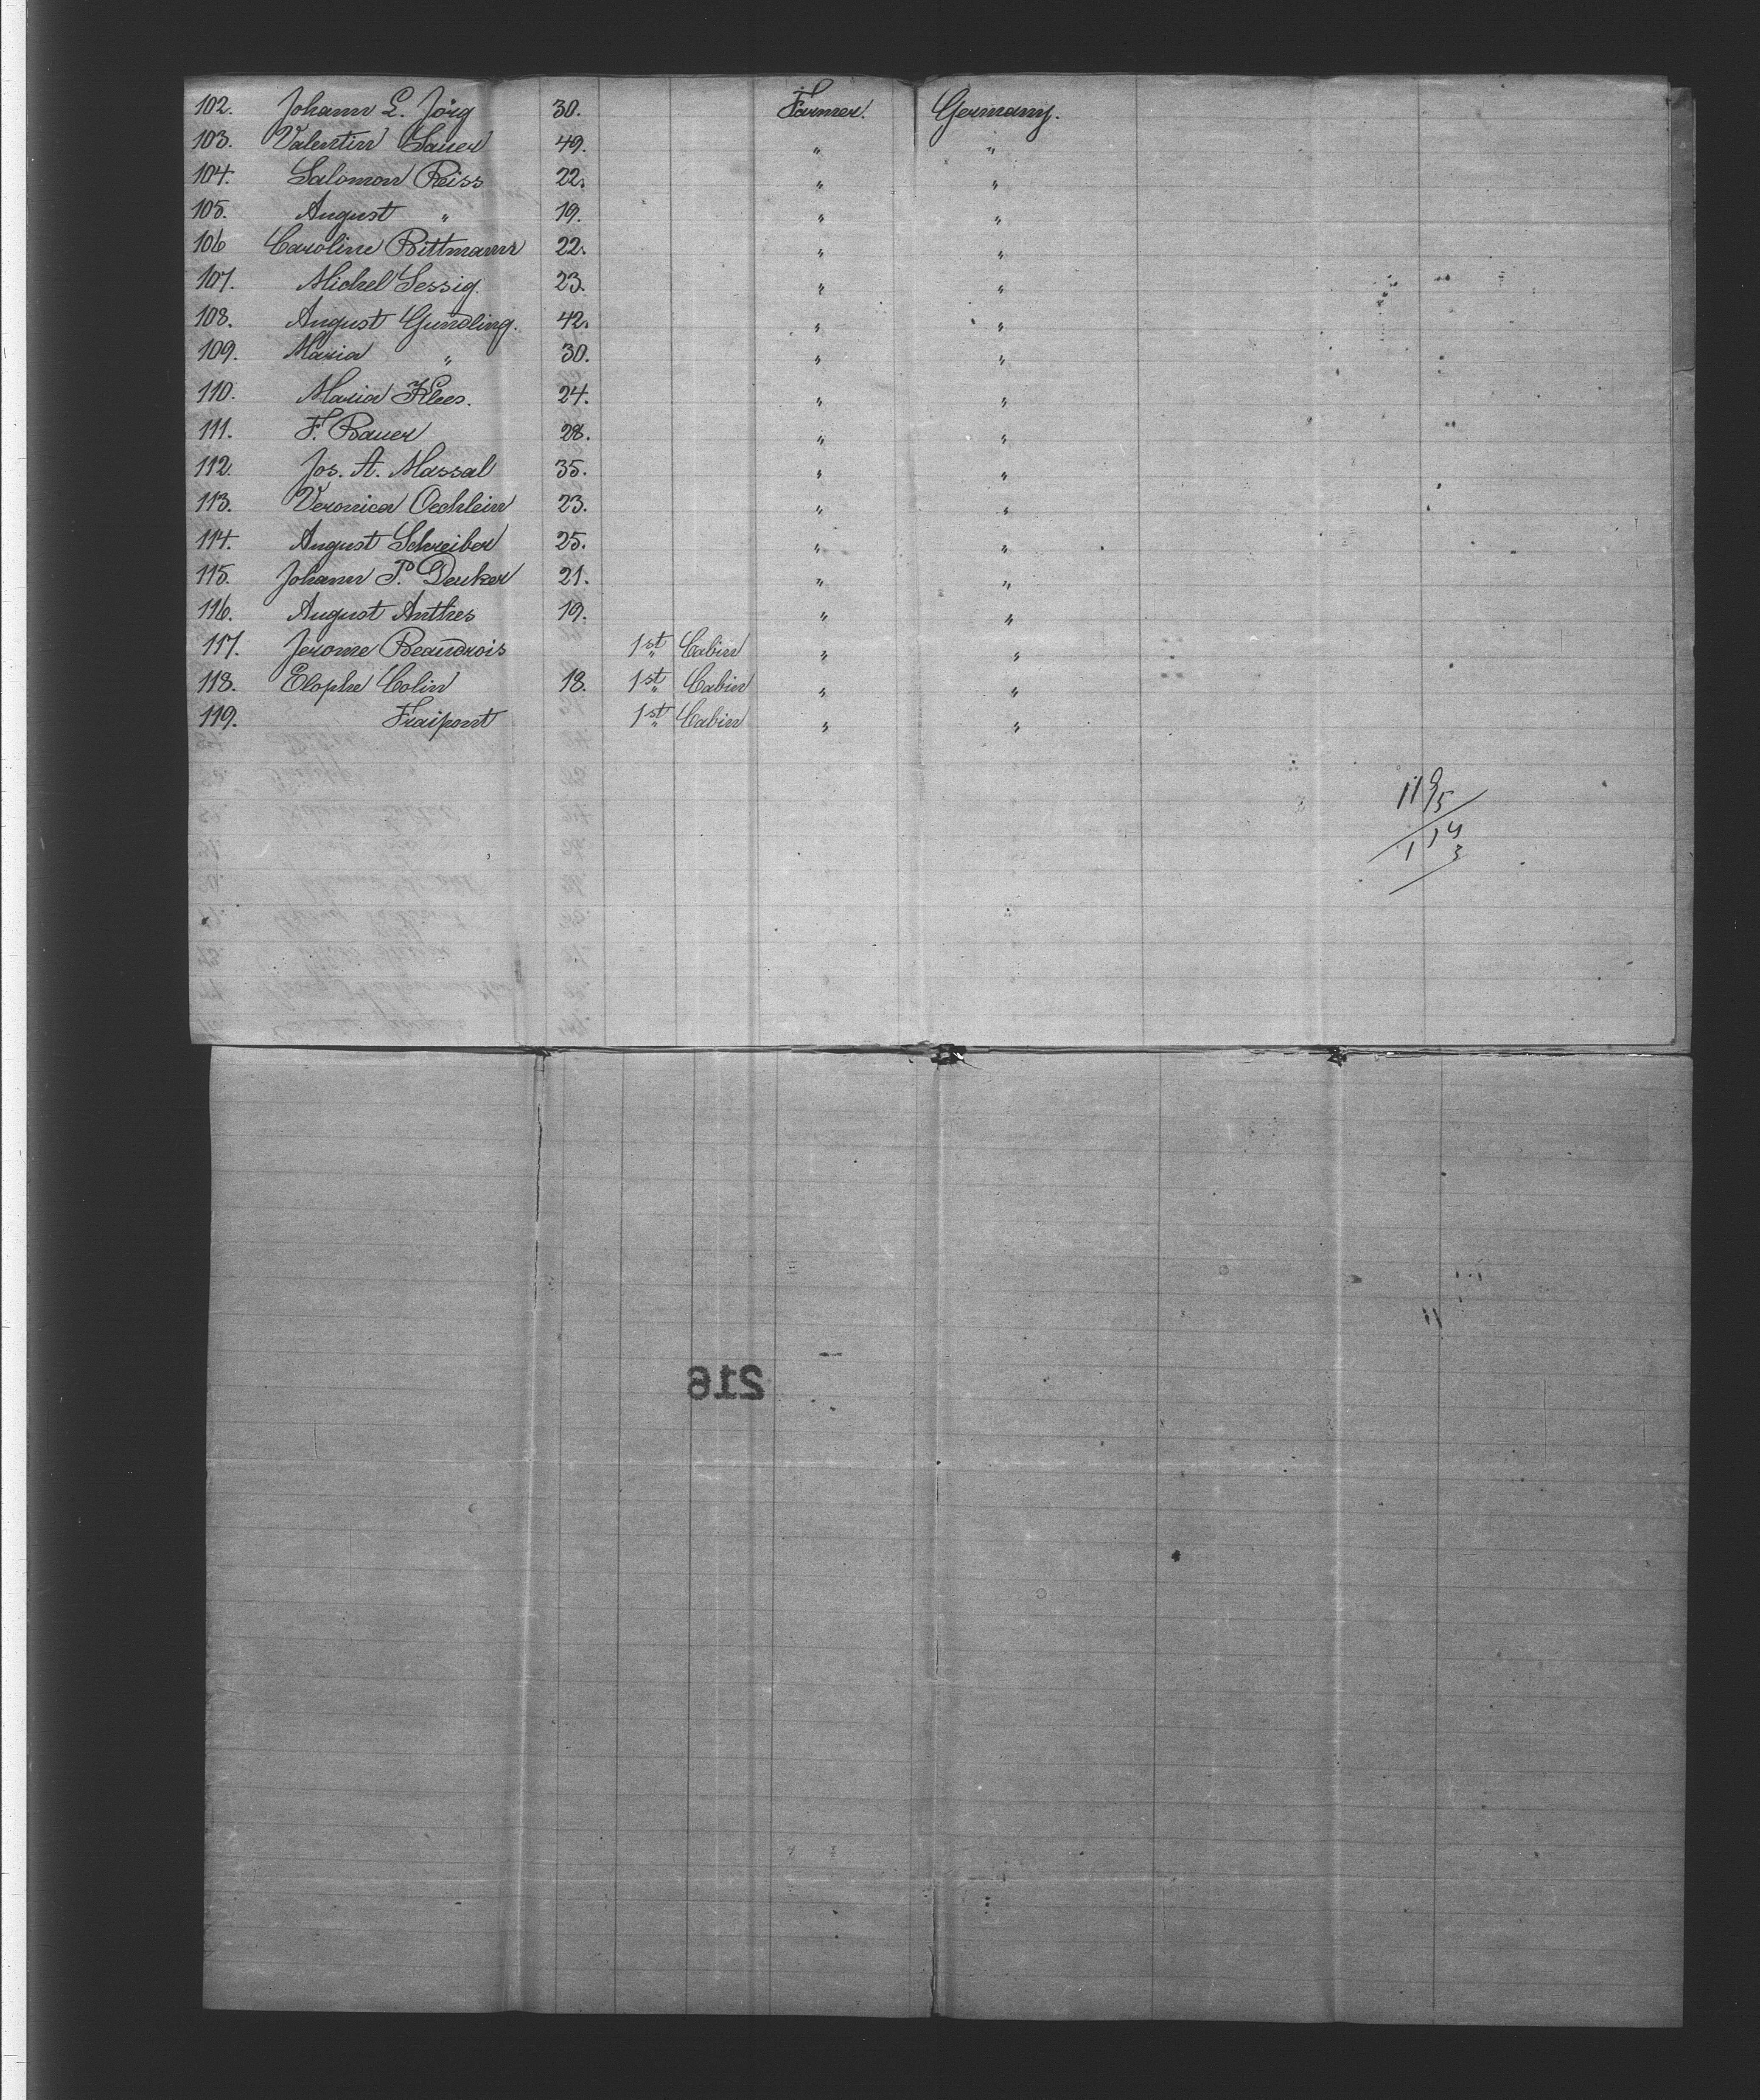 102. Johann L. Jörg 30. Farmer. Germany.
103. Valentin Sauer 49. " "
104. Salomon Reiss 22. " "
105. August " 19. " "
106 Caroline Rittmann 22. " "
107. Michel Lessig. 23. " "
108. August Gundling. 42. " "
109. Maria " 30. " "
110. Maria Klees. 24. " "
111. F. Bauer 28. " "
112. Jos. A. Massal 35. " "
113. Veronica Oechlein 23. " "
114. August Schreiber 25. " "
115. Johann P. Deuker 21. " "
116. August Anthes 19. " "
117. Jerome Beaudrois 1st Cabin " "
118. Elophe Colin 18. 1st Cabin " "
119. Fraipont 1st Cabin " "
216